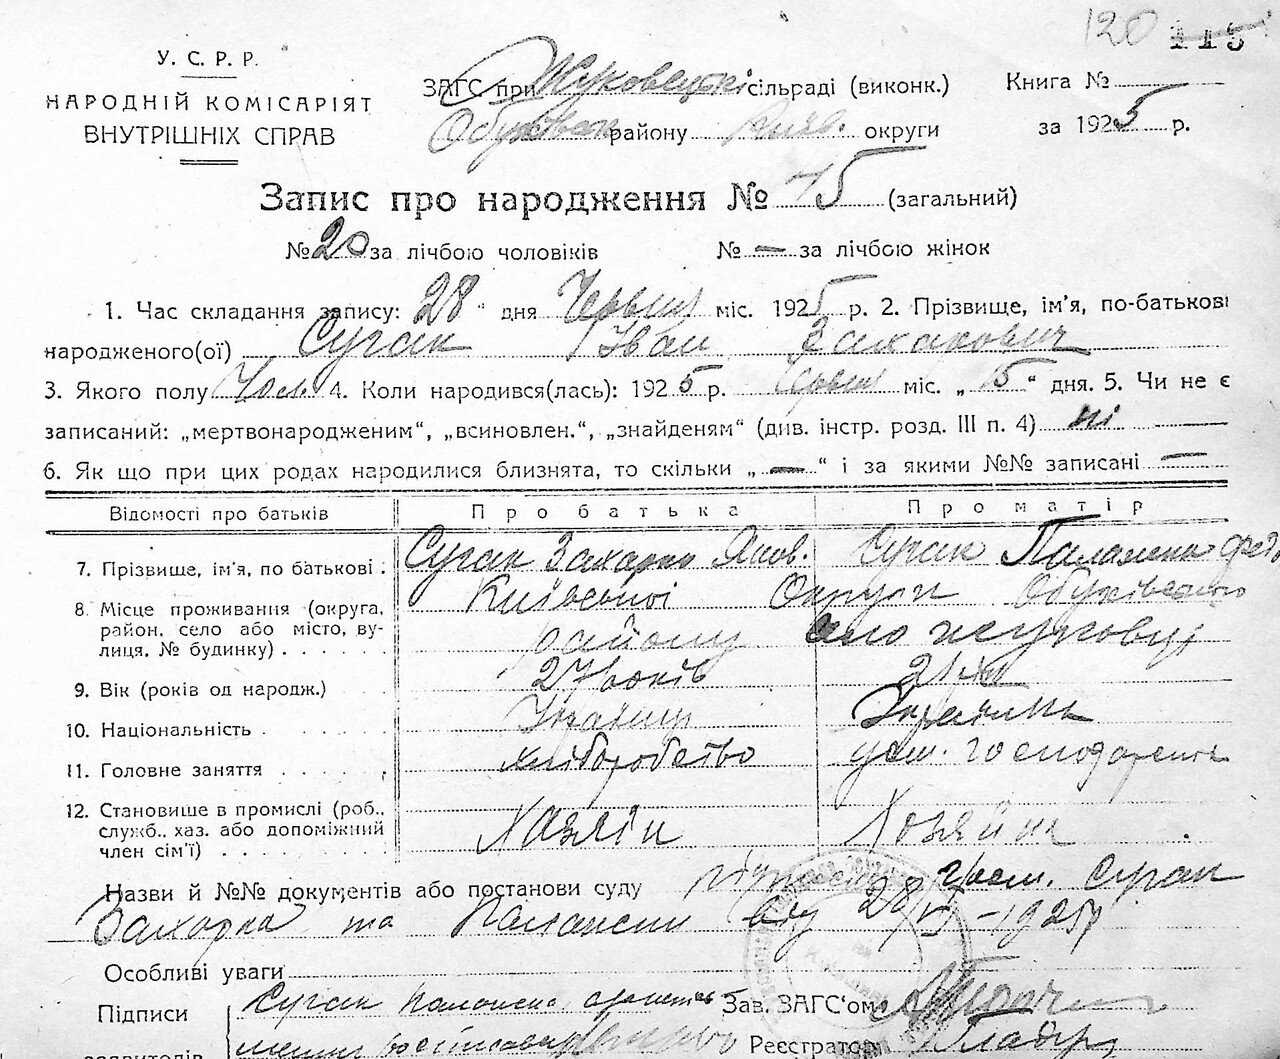 120 115
У. С. Р. Р.
НАРОДНІЙ КОМІСАРІЯТ
ВНУТРІШНІХ СПРАВ
ЗАГС при Жуковецькі сільраді (виконк.) Книга №
Обухівськ району Київ. округи за 1925 р.
Запис про народження № 75 (загальний)
№ 20 за лічбою чоловіків № — за лічбою жінок
1. Час складання запису: 28 " дня Червня міс. 1925 р. 2. Прізвище, ім'я, по-батькові
народженого(ої) Сугак Іван Захарович
3. Якого полу Чол. 4. Коли народився(лась): 1925 р. Червня міс. „ 15 " дня. 5. Чи не є
записаний: „мертвонародженим", „всиновлен.", „знайденям" (див. інстр. розд. III п. 4) ні
6. Як що при цих родах народилися близнята, то скільки „ — " і за якими №№ записані —
Відомості про батьків Про батька Про матір
7. Прізвище, ім'я, по батькові . Сугак Захарко Яков. Сугак Палажка Федь
8. Місце проживання (округа, Київської Округи Обухівського
район, село або місто, ву- району село Жуковці
лиця, № будинку) . . . . . .
9. Вік (років од народж.) 27 років 21 рік
10. Національність . Українець Українка
11. Головне заняття . . . . . хліборобство дом. господарство
12. Становище в промислі (роб.,
служб., хаз. або допоміжний Хазяїн Хозяйка
член сім'ї) . . . . . . . .
Назви й №№ документів або постанови суду гром. Сугак
Захарка та Палажки від 28/VI-1925р
Особливі уваги
Підписи Сугак Палажка Зав. ЗАГС'ом
заявителів Реєстратор